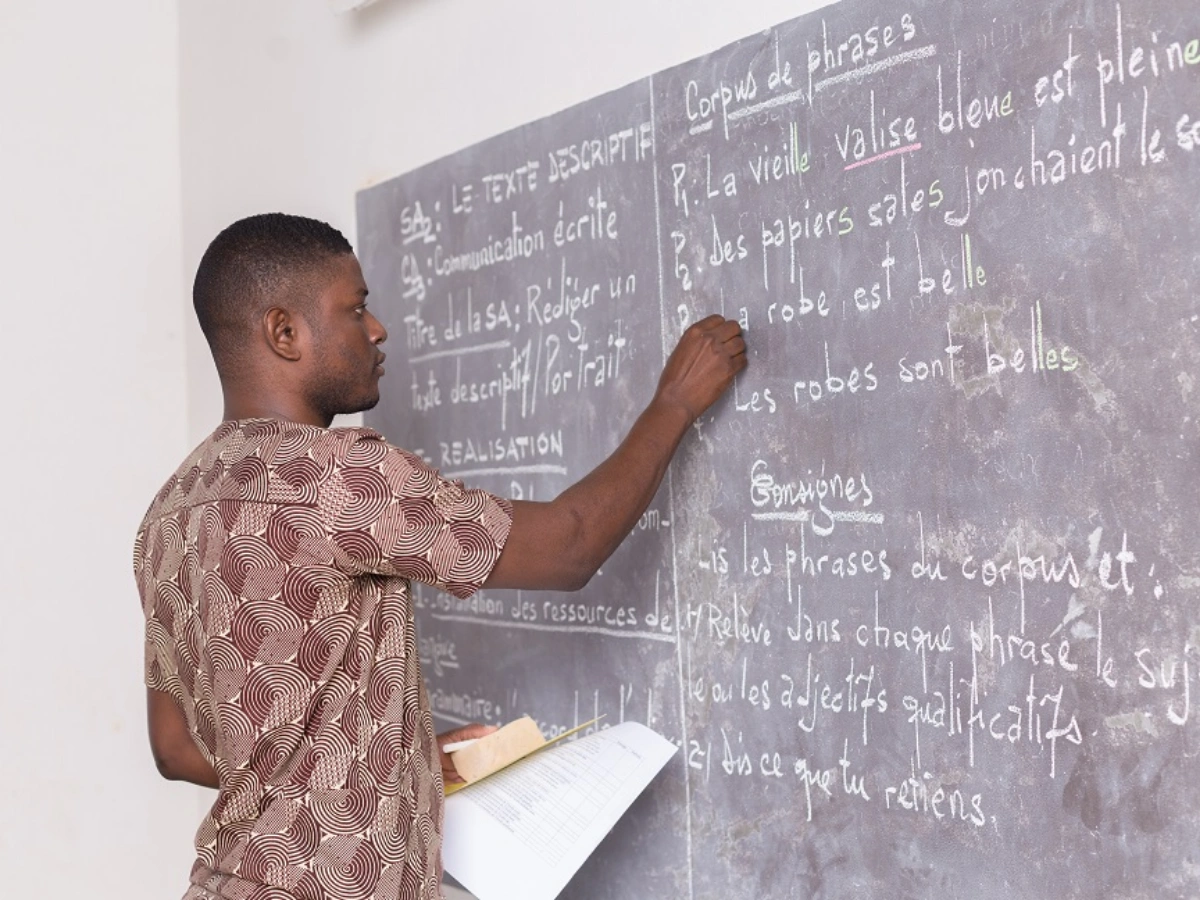 SA2: LE TEXTE DESCRIPTIF
C3: Communication écrite
Titre de la SA: Rédiger un
texte descriptif/Portrait
REALISATION
om-
des ressources de
Corpus de phrases
P1: La vieille valise bleue est pleine
P2: Des papiers sales jonchaient le
robe est belle
Les robes sont belles
Consignes
Lis les phrases du corpus et:
1/ Relève dans chaque phrase le Suj
le ou les adjectifs qualificatifs.
2/ Dis ce que tu retiens.